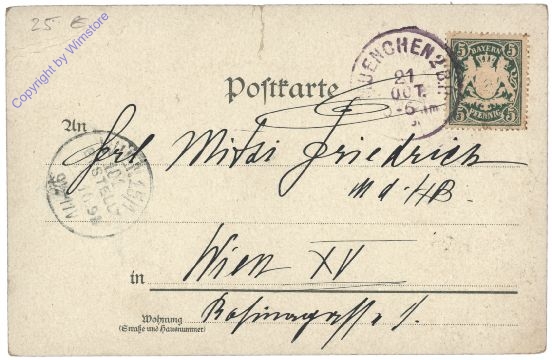 25 €
Copyright by Wimstore
Postkarte
MUENCHEN 2 B.P.
21
OCT.
5-6 Nm
5 BAYERN 5
PFENNIG
An
Frl. Mitzi Friedrich
WIEN 15/1
BESTELLT
in Wien XV
Wohnung
(Straße und Hausnummer)